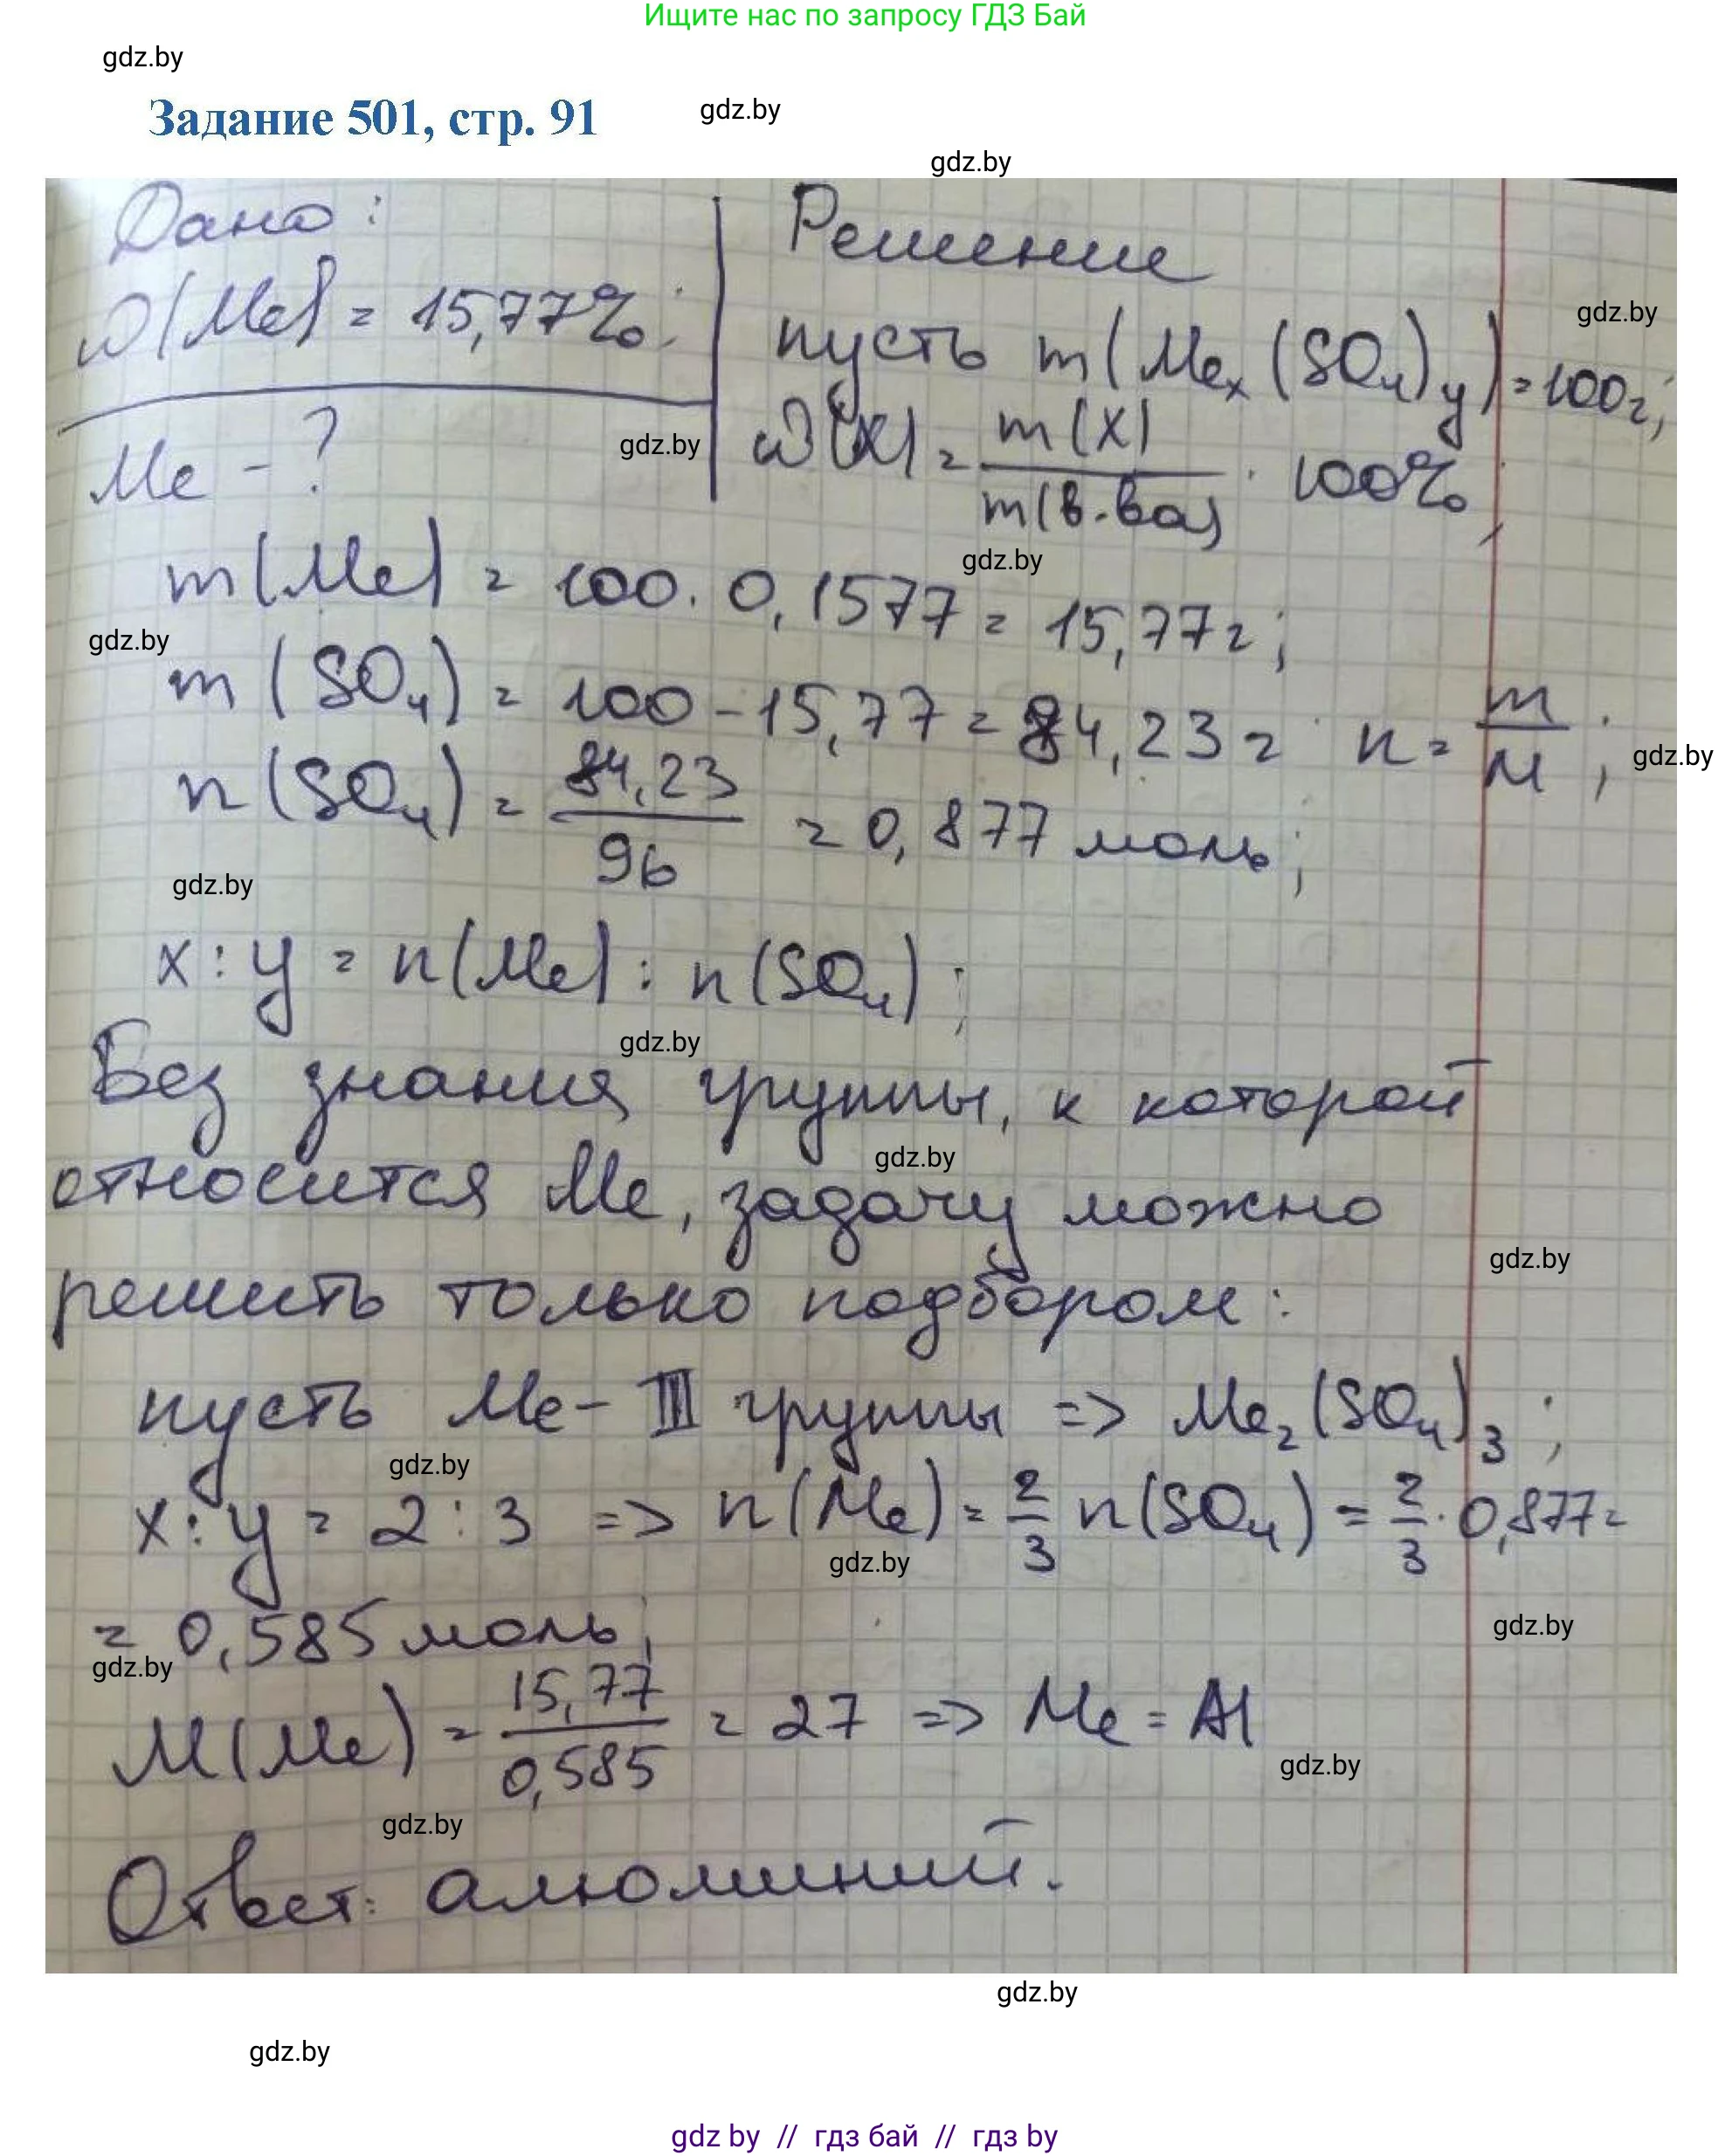 Ищите нас по запросу ГДЗ Бай
gdz.by
Задание 501, стр. 91
gdz.by
gdz.by
Дано:
Решение
ω(Me) = 15,77%;
gdz.by
пусть m(Meₓ(SO₄)y) = 100г;
Me - ?
gdz.by
ω(X) = m(X)/m(в-ва) · 100%;
gdz.by
m(Me) = 100 · 0,1577 = 15,77г;
gdz.by
m(SO₄) = 100 - 15,77 = 84,23г n = m/M;
gdz.by
n(SO₄) = 84,23/96 = 0,877 моль;
gdz.by
x : y = n(Me) : n(SO₄);
gdz.by
Без знания группы, к которой
gdz.by
относится Me, задачу можно
gdz.by
решить только подбором:
пусть Me - III группы => Me₂(SO₄)₃;
gdz.by
x : y = 2 : 3 => n(Me) = 2/3 n(SO₄) = 2/3 · 0,877 =
gdz.by
= 0,585 моль;
gdz.by
gdz.by
M(Me) = 15,77/0,585 = 27 => Me = Al
gdz.by
gdz.by
Ответ: алюминий.
gdz.by
gdz.by
gdz by // гдз бай // гдз by